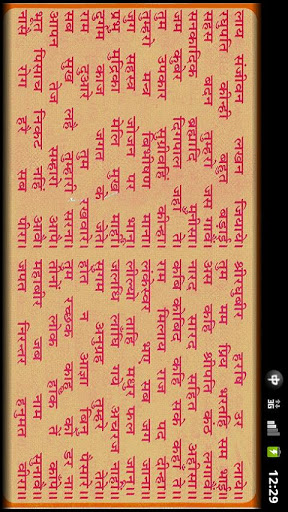 3G 12:29
लाय सजीवन लखन जियाये। श्रीरघुबीर हरषि उर लाये॥
रघुपति कीन्ही बहुत बड़ाई। तुम मम प्रिय भरतहि सम भाई॥
सहस बदन तुम्हरो जस गावैं। अस कहि श्रीपति कंठ लगावैं॥
सनकादिक ब्रह्मादि मुनीसा। नारद सारद सहित अहीसा॥
जम कुबेर दिगपाल जहाँ ते। कबि कोबिद कहि सके कहाँ ते॥
तुम उपकार सुग्रीवहिं कीन्हा। राम मिलाय राज पद दीन्हा॥
तुम्हरो मन्त्र बिभीषण माना। लंकेस्वर भए सब जग जाना॥
जुग सहस्र जोजन पर भानू। लील्यो ताहि मधुर फल जानू॥
प्रभु मुद्रिका मेलि मुख माहीं। जलधि लाँघि गये अचरज नाहीं॥
दुर्गम काज जगत के जेते। सुगम अनुग्रह तुम्हरे तेते॥
राम दुआरे तुम रखवारे। होत न आज्ञा बिनु पैसारे॥
सब सुख लहै तुम्हारी सरना। तुम रच्छक काहू को डर ना॥
आपन तेज सम्हारो आपै। तीनों लोक हाँक तें काँपै॥
भूत पिशाच निकट नहिं आवै। महाबीर जब नाम सुनावै॥
नासै रोग हरै सब पीरा। जपत निरन्तर हनुमत बीरा॥